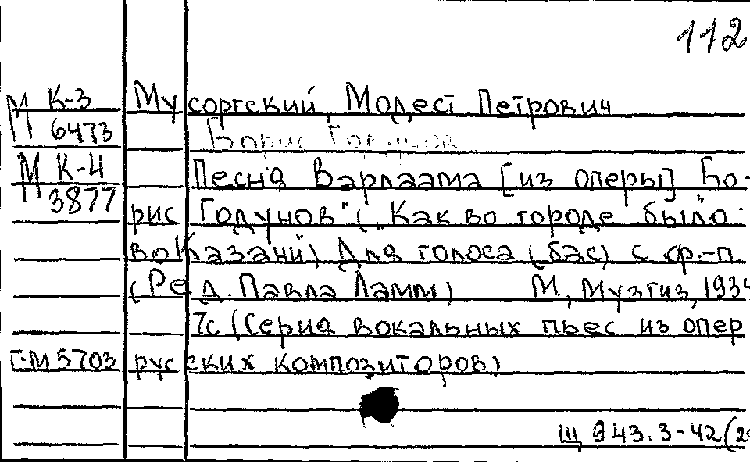 112
М К-3 Мусоргский, Модест Петрович
6473 Борис Годунов
М К-4 Песня Варлаама [из оперы] Бо-
3877 рис Годунов" („Как во городе было
во Казани") Для голоса (бас) с ф.-п.
(Ред. Павла Ламм) М, Музгиз, 1934
7с (Серия вокальных пьес из опер
Г-М 5703 русских композиторов)
Щ 943.3-42(2